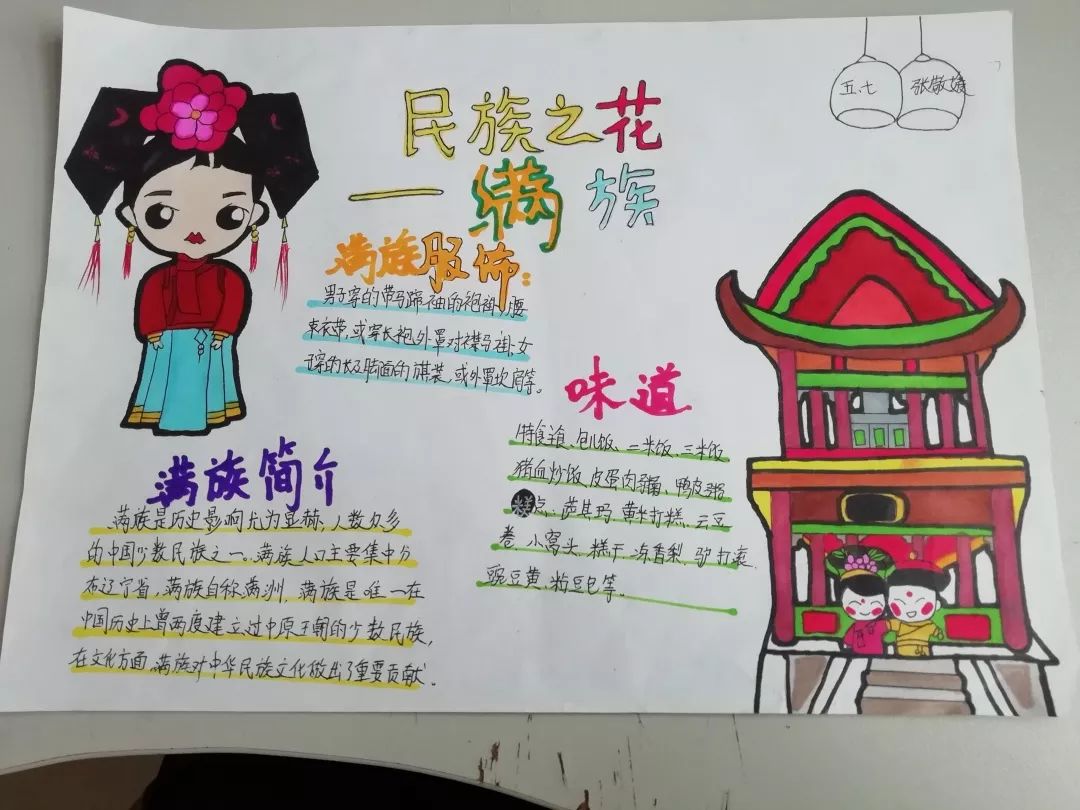 五、七
民族之花
——满族
满族服饰：
男子穿的带马蹄袖的袍褂、腰
束衣带,或穿长袍外罩对襟马褂、女
子穿的长及脚面的旗装,或外罩坎肩等。
味道
特食渣、包儿饭、二米饭、三米饭
猪血炒饭、皮蛋肉粥、鸭皮粥
糕点、萨其玛、黄牛打糕、云豆
卷、小窝头、糕干、冻香梨、驴打滚
豌豆黄、粘豆包等。
满族简介
满族是历史影响尤为显赫、人数众多
的中国少数民族之一。满族人口主要集中分
在辽宁省,满族自称满洲,满族是唯一在
中国历史上曾两度建立过中原王朝的少数民族,
在文化方面,满族对中华民族文化做出了重要贡献。